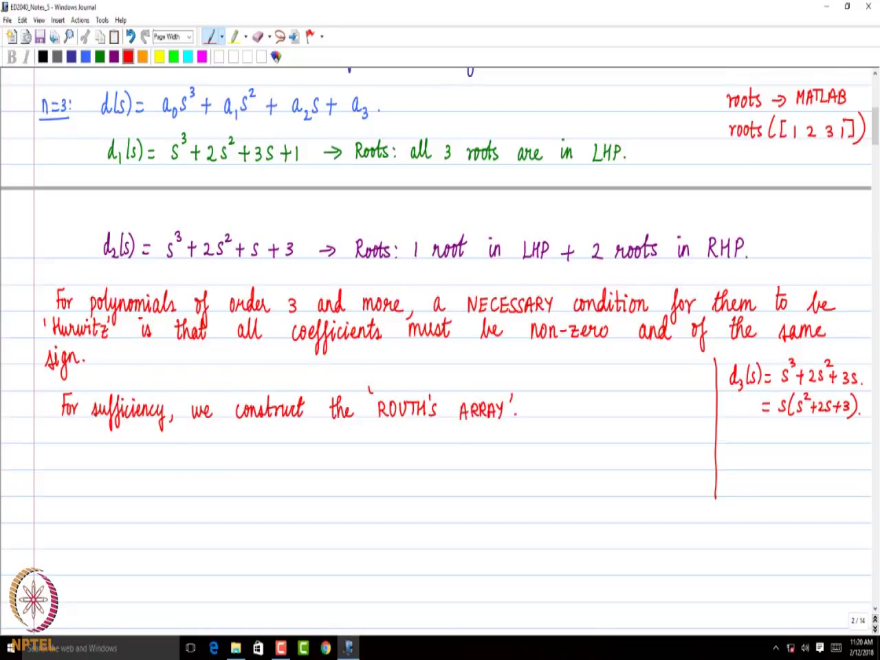 ED2040_Notes_5 - Windows Journal
File Edit View Insert Actions Tools Help
Page Width
B I
n=3: d(s) = a₀s³ + a₁s² + a₂s + a₃.
roots → MATLAB
roots([1 2 3 1])
d₁(s) = s³ + 2s² + 3s + 1 → Roots: all 3 roots are in LHP.
d₂(s) = s³ + 2s² + s + 3 → Roots: 1 root in LHP + 2 roots in RHP.
For polynomials of order 3 and more, a NECESSARY condition for them to be
'Hurwitz' is that all coefficients must be non-zero and of the same
sign.
d₃(s) = s³ + 2s² + 3s.
= s(s²+2s+3).
For sufficiency, we construct the 'ROUTH'S ARRAY'.
2 / 14
NPTEL
the web and Windows
11:20 AM
2/12/2018